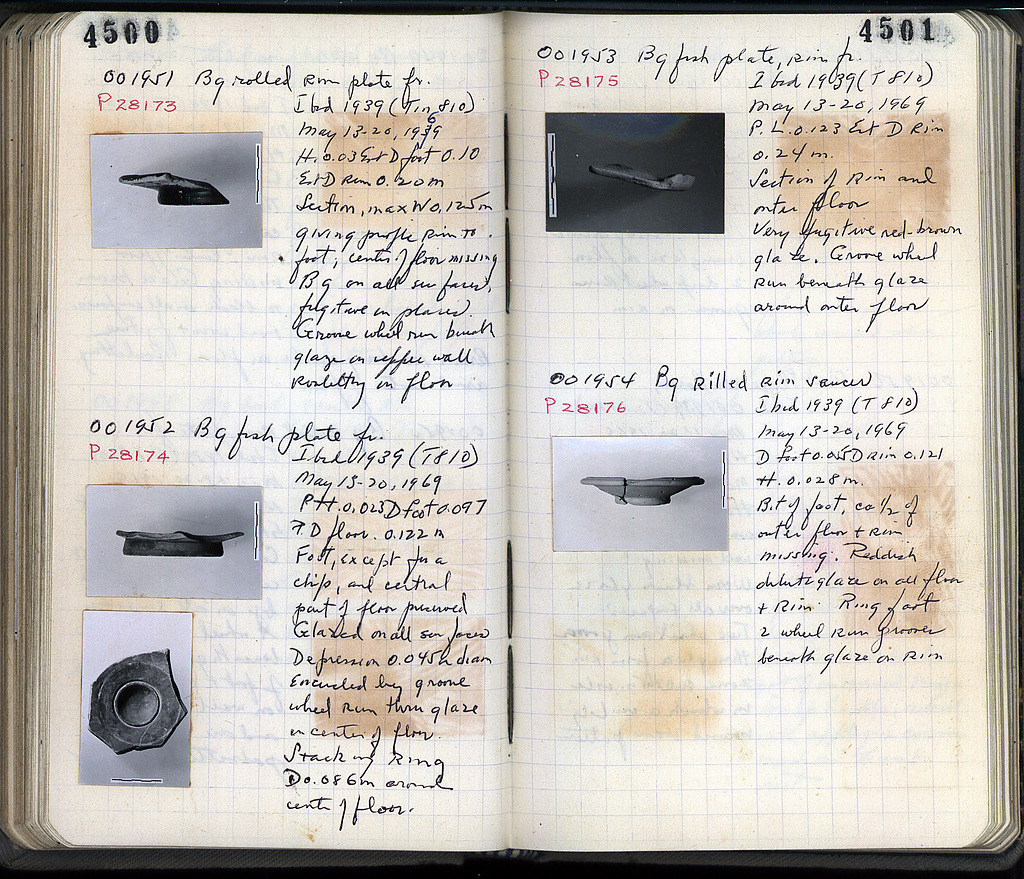 4500
001951 Bg rolled rim plate fr.
P 28173
Ibid 1939 (Tin 810)
May 13-20, 1969
H. 0.03 Est D foot 0.10
Est D Rim 0.20 m
Section, max W 0.125 m
giving profile Rim to
foot; center of floor missing
Bg on all surfaces,
fugitive in places.
Groove wheel run beneath
glaze on upper wall
Rouletting on floor
001952 Bg fish plate fr.
P 28174
Ibid 1939 (T 810)
May 13-20, 1969
PH. 0.023 D foot 0.097
P.D floor. 0.122 m
Foot, except for a
chip, and central
part of floor preserved
Glazed on all surfaces
Depression 0.045 in diam
Encircled by groove
wheel run thru glaze
in center of floor.
Stacking Ring
D 0.086 m around
center of floor.
4501
001953 Bg fish plate, rim fr.
P 28175
Ibid 1939 (T 810)
May 13-20, 1969
P. L. 0.123 Est D Rim
0.24 m.
Section of Rim and
outer floor
Very fugitive red-brown
glaze. Groove wheel
run beneath glaze
around outer floor
001954 Bg Rilled rim saucer
P 28176
Ibid 1939 (T 810)
May 13-20, 1969
D foot 0.055 D rim 0.121
H. 0.028 m.
Bit of foot, ca 1/2 of
outer floor + Rim
missing. Reddish
dilute glaze on all floor
+ Rim. Ring foot
2 wheel run grooves
beneath glaze on rim